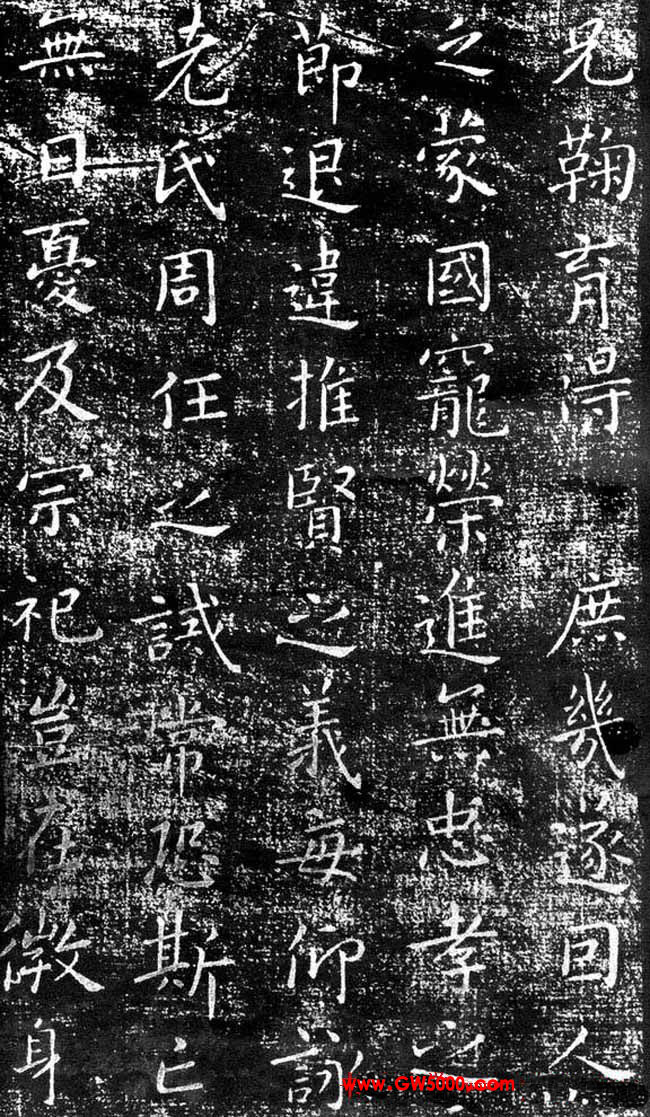 兄鞠育得 庶幾遂因人
之蒙國寵榮進無忠孝之
節退違推賢之義每仰詠
老氏周任之誡常恐斯亡
無日憂及宗祀豈在微身
www.GW5000.com